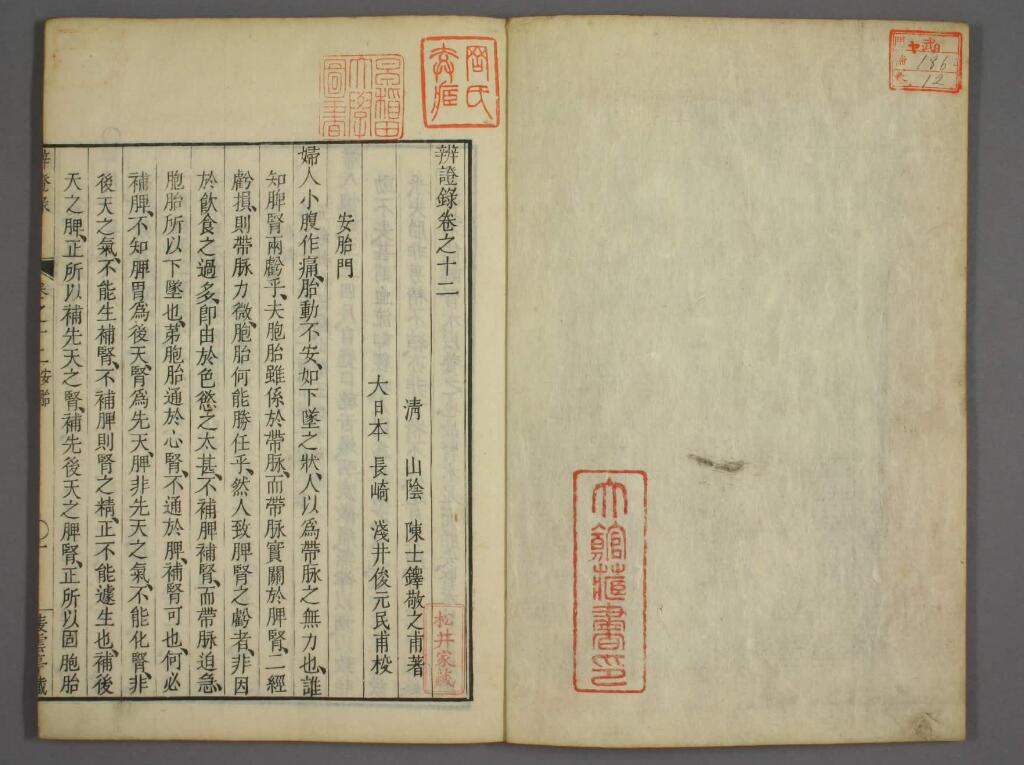 辨證錄卷之十二
清 山陰 陳士鐸敬之甫著
大日本 長崎 淺井俊元民甫校
安胎門
婦人小腹作痛、胎動不安、如下墜之狀、人以爲帶脉之無力也、誰
知脾腎兩虧乎、夫胞胎雖係於帶脉、而帶脉實關於脾腎、二經
虧損、則帶脉力微、胞胎何能勝任乎、然人致脾腎之虧者、非因
於飲食之過多、卽由於色慾之太甚、不補脾補腎、而帶脉迫急、
胞胎所以下墜也、第胞胎通於心腎、不通於脾、補腎可也、何必
補脾、不知脾胃爲後天、腎爲先天、脾非先天之氣、不能化、腎非
後天之氣、不能生、補腎、不補脾則腎之精、正不能遽生也、補後
天之脾、正所以補先天之腎、補先後天之脾腎、正所以固胞胎
卷之十二 安胎
〇一
松井家藏
早稻田大學圖書
大館藏書印
186
12